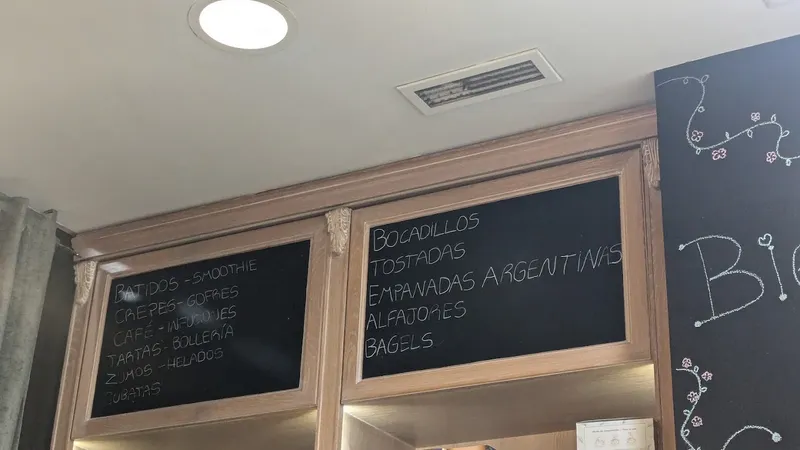 BATIDOS - SMOOTHIE
CREPES - GOFRES
CAFÉ - INFUSIONES
TARTAS - BOLLERÍA
ZUMOS - HELADOS
CUBATAS
BOCADILLOS
TOSTADAS
EMPANADAS ARGENTINAS
ALFAJORES
BAGELS